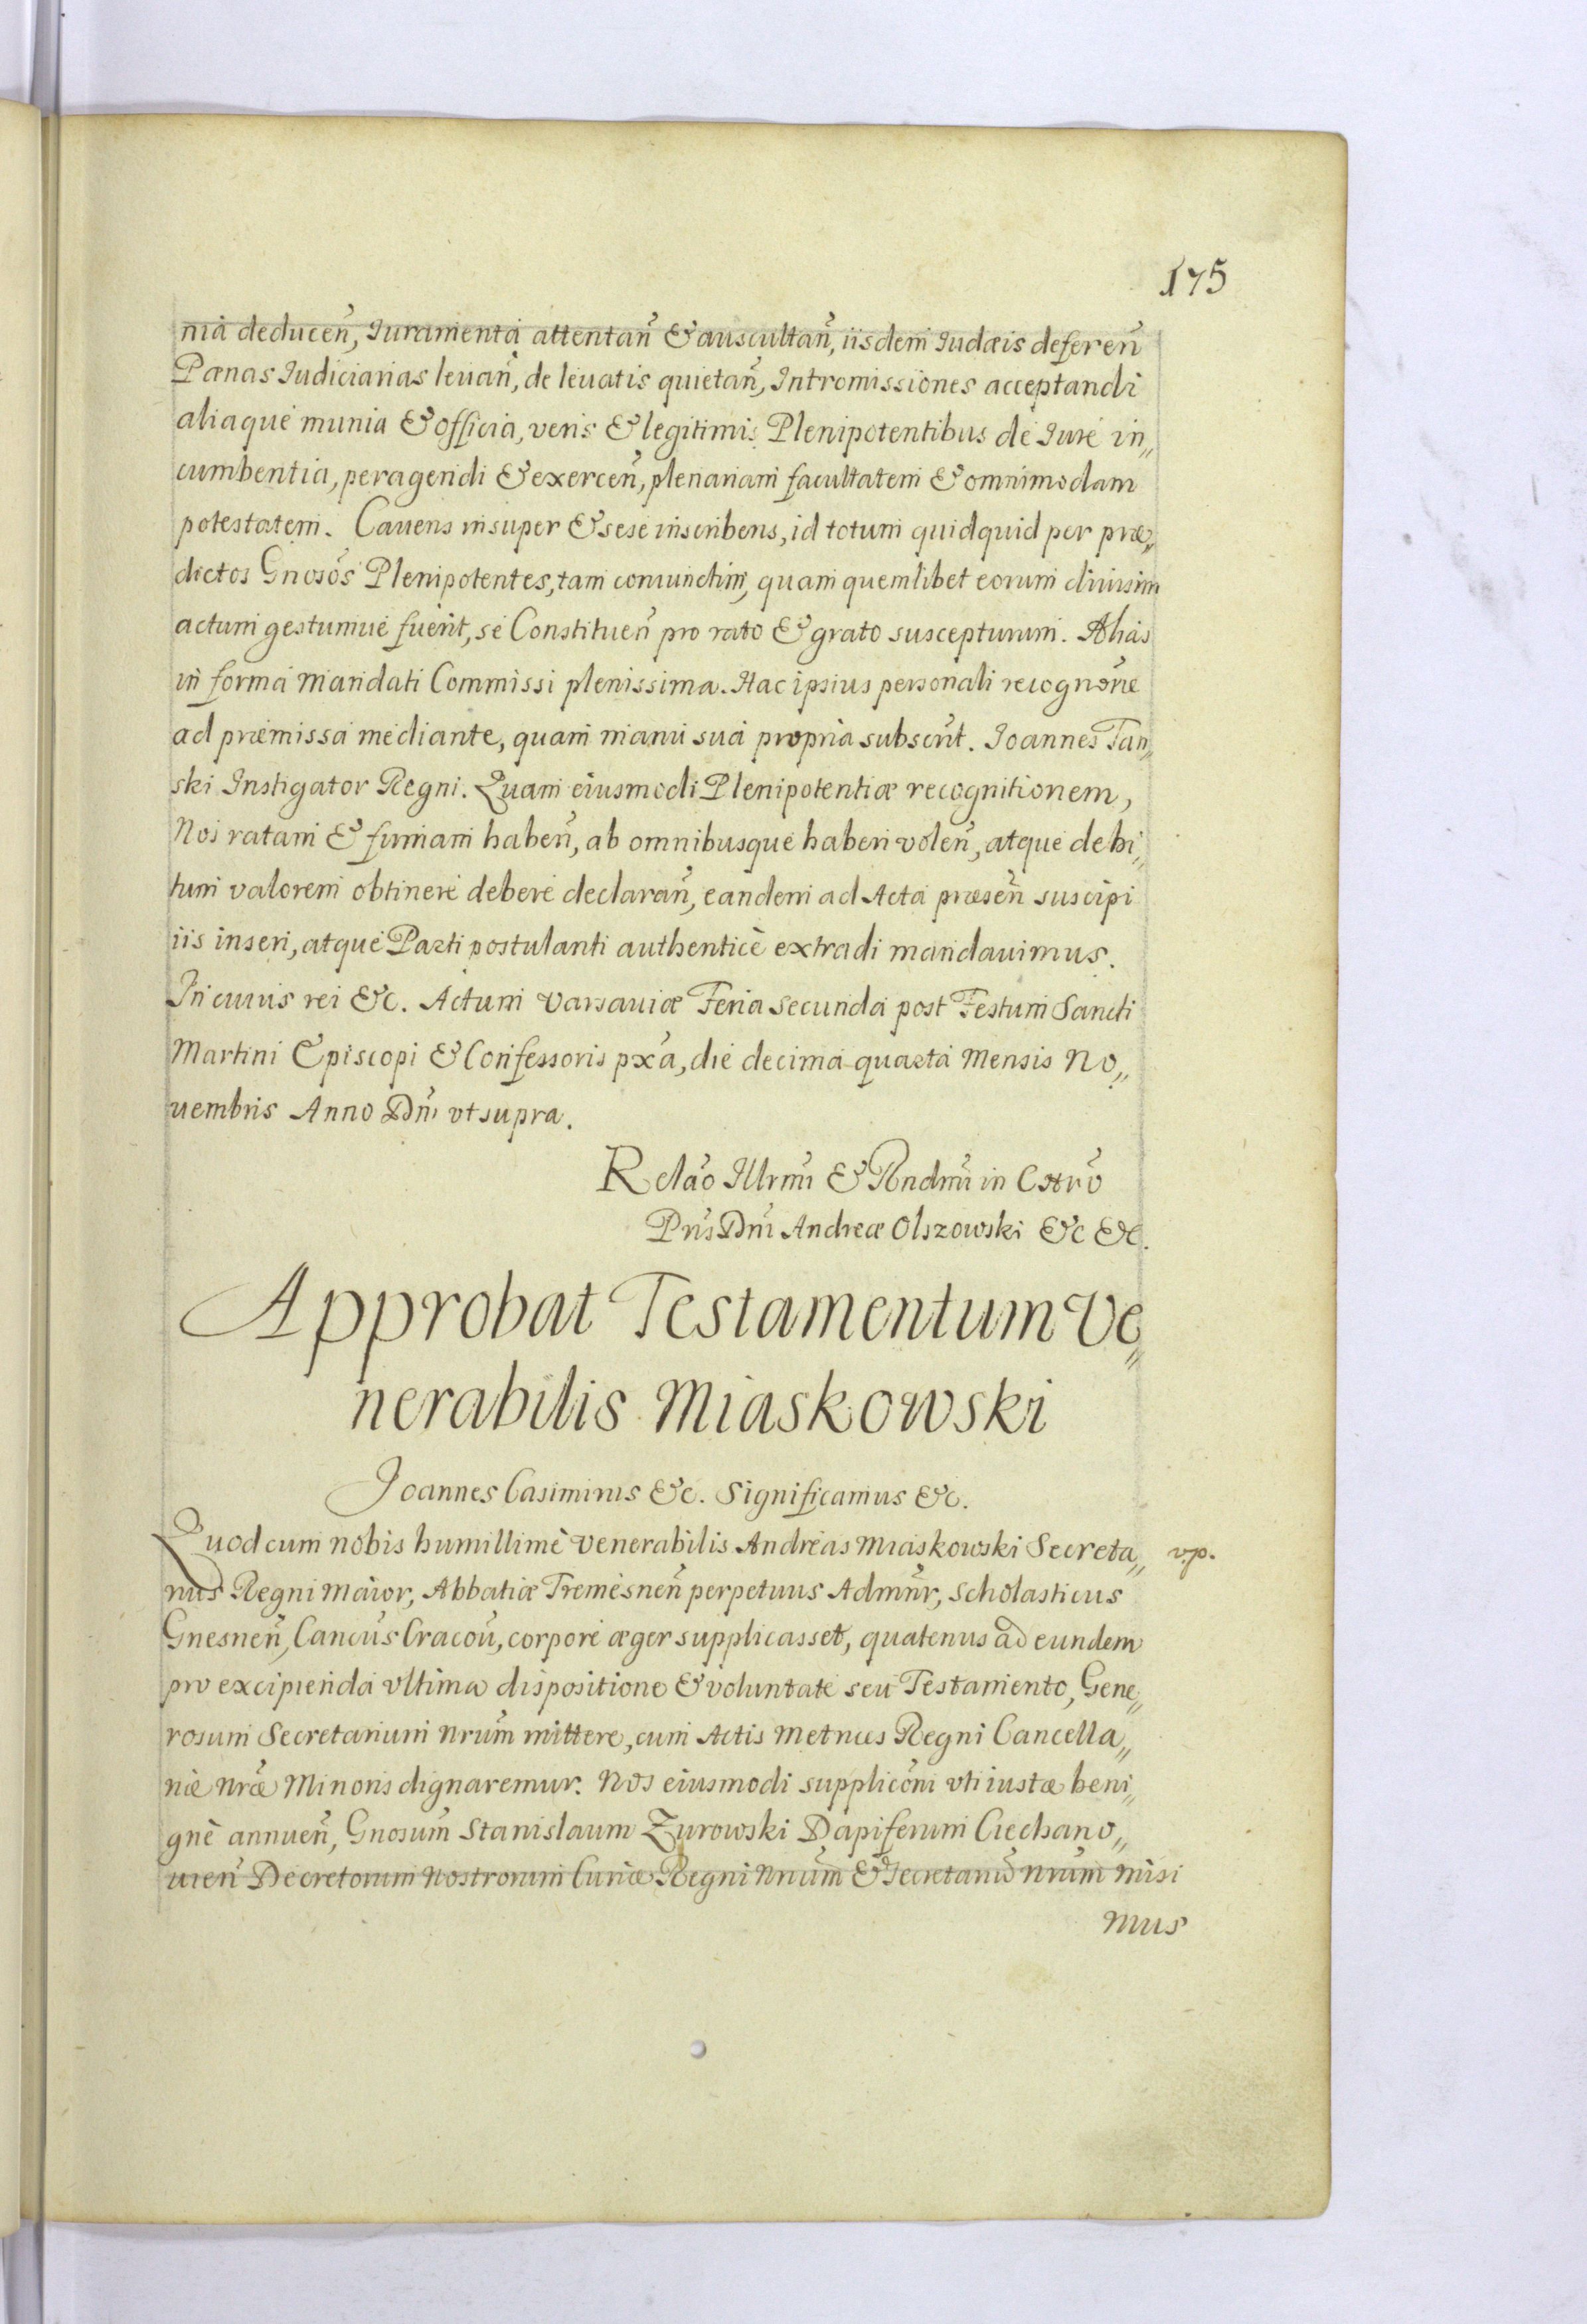 175
nia deducen̄, Iuramenta attentan̄ & auscultan̄, iisdem Iudæis deferen̄
Pænas Iudiciarias leuan̄, de leuatis quietan̄, Intromissiones acceptandi
aliaque munia & officia, veris & legitimis Plenipotentibus de Iure in„
cumbentia, peragendi & exercen̄, plenariam facultatem & omnimodam
potestatem. Cauens insuper & sese inscribens, id totum quidquid per præ„
dictos Gnosōs Plenipotentes, tam coniunctim, quam quemlibet eorum diuisim
actum gestumue fuerit, se Constituen̄ pro rato & grato suscepturum. Alias
in forma Mandati Commissi plenissima. Hac ipsius personali recognōne
ad præmissa mediante, quam manu sua propria subscrīt. Joannes Tan„
ski Instigator Regni. Quam eiusmodi Plenipotentiæ recognitionem,
Nos ratam & firmam haben̄, ab omnibusque haberi volen̄, atque debi„
tum valorem obtinere debere declaran̄, eandem ad Acta præsen̄ suscipi
iis inseri, atque Parti postulanti authenticè extradi mandauimus.
In cuius rei &c. Actum Varsauiæ Feria secunda post Festum Sancti
Martini Episcopi & Confessoris pxa, die decima quarta Mensis No„
uembris Anno Dn̄i vt supra.
Relāo Illrm̄i & Rndm̄i in Cstrō
Pr̄is Dn̄i Andreæ Olszowski &c &c.
Approbat Testamentum Ve„
nerabilis Miaskowski
Joannes Casimirus &c. Significamus &c.
Quod cum nobis humillimè Venerabilis Andreas Miaskowski Secreta„
v.p.
rius Regni Maior, Abbatiæ Tremesnen̄ perpetuus Admn̄r, Scholasticus
Gnesnen̄, Cancus̄ Cracou̅, corpore æger supplicasset, quatenus ad eundem
pro excipienda vltima dispositione & voluntate seu Testamento, Gene„
rosum Secretarium Nrūm mittere, cum Actis Metrices Regni Cancella„
riæ Nrāe Minoris dignaremur. Nos eiusmodi supplicōni vti iustæ beni„
gnè annuen̄, Gnosum̄ Stanislaum Zurowski Dapiferum Ciechano„
uien̄ Decretorum Nostrorum Curiæ Regni Nrium̄ & Secretariū Nrūm misi
mus